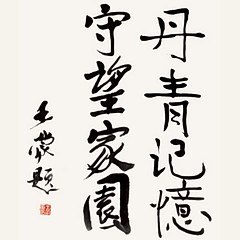 丹青记憶
守望家園
王蒙题